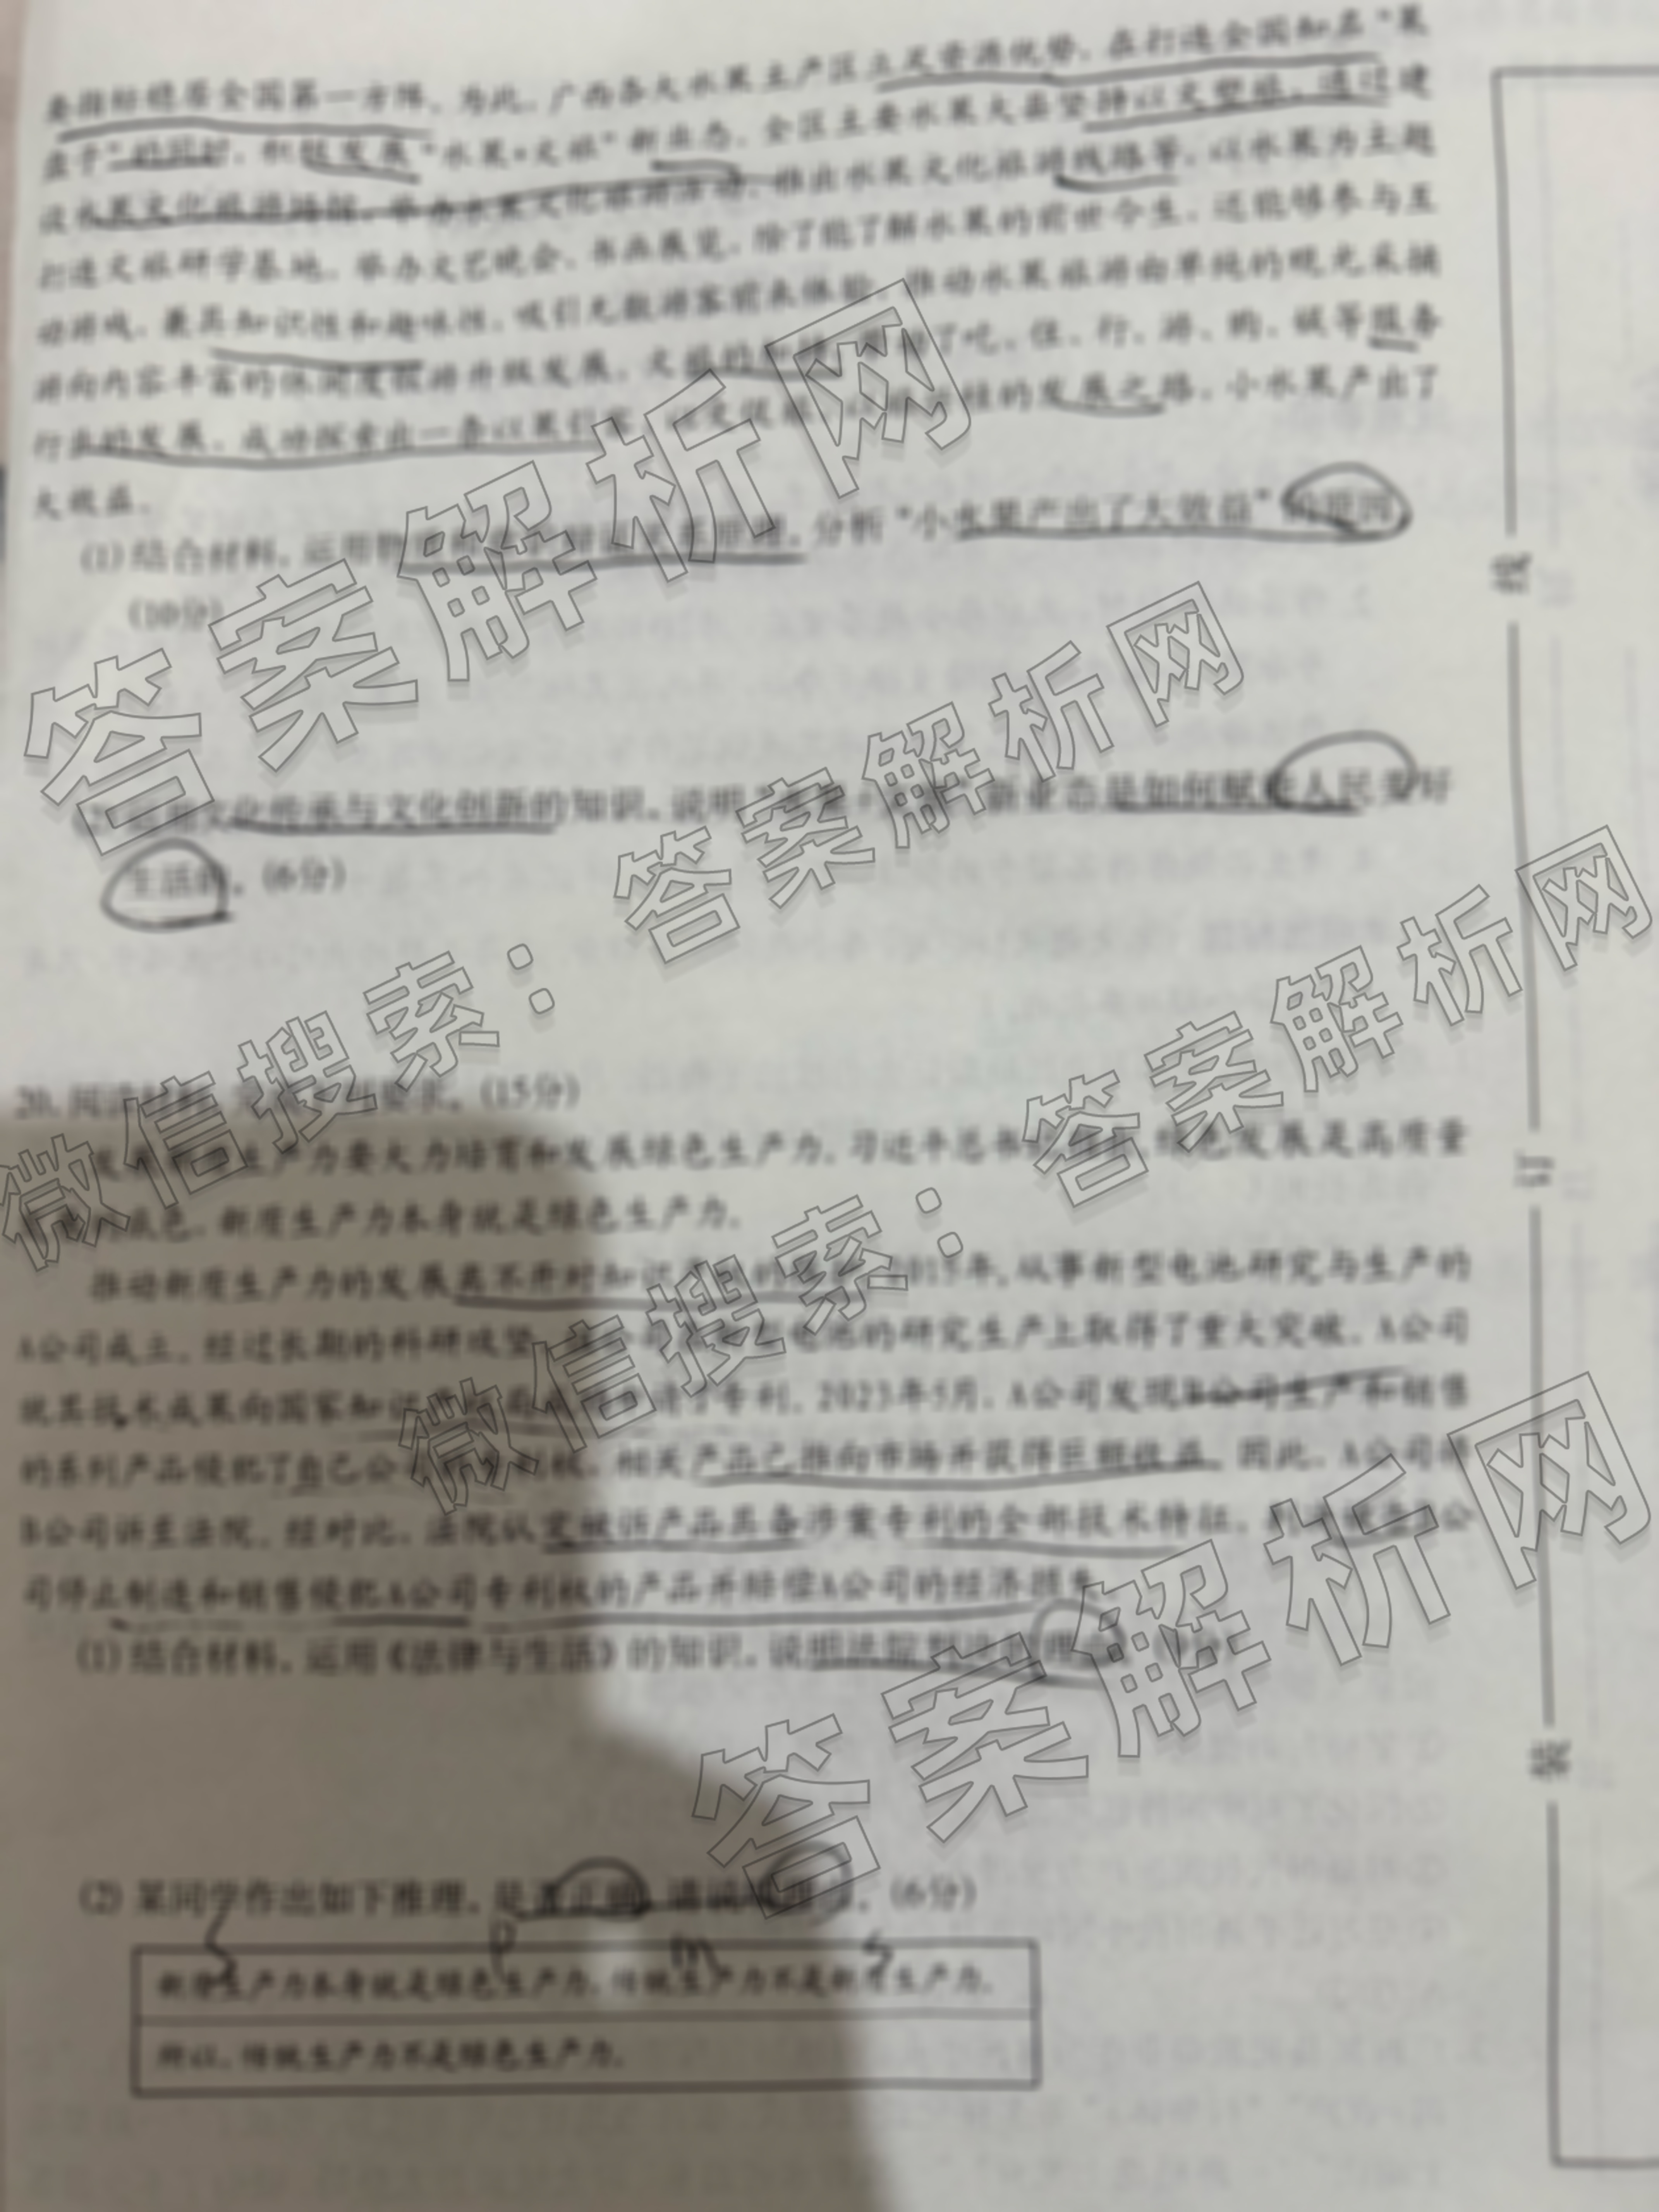 要指标稳居全国第一方阵。为此，广西各大水果主产区立足资源优势，在打造全国知名“果
盘子”的同时，积极发展“水果+文旅”新业态。全区主要水果大县坚持以文塑旅，通过建
设水果文化旅游场馆、举办水果文化旅游活动、推出水果文化旅游线路等，以水果为主题
打造文旅研学基地、举办文艺晚会、书画展览，除了能了解水果的前世今生，还能够参与互
动游戏，兼具知识性和趣味性，吸引无数游客前来体验，推动水果旅游由单纯的观光采摘
游向内容丰富的休闲度假游升级发展。文旅的 了吃、住、行、游、购、娱等服务
行业的发展，成功探索出一条以果引客、以文促旅 的发展之路，小水果产出了
大效益。
(1) 结合材料，运用 ，分析“小水果产出了大效益”的原因。
(10分)
文化传承与文化创新的知识，说明 新业态是如何赋能人民美好
生活的。(6分)
20. 阅读材料，完成下列要求。(15分)
生产力要大力培育和发展绿色生产力。习近平总书记 绿色发展是高质量
底色，新质生产力本身就是绿色生产力。
推动新质生产力的发展离不开对知识 年，从事新型电池研究与生产的
A公司成立。经过长期的科研攻坚， 电池的研究生产上取得了重大突破。A公司
就其技术成果向国家知识 专利。2023年5月，A公司发现B公司生产和销售
的系列产品侵犯了自己公 ，相关产品已推向市场并获得巨额收益。因此，A公司将
B公司诉至法院。经对比，法院认定被诉产品具备涉案专利的全部技术特征， B公
司停止制造和销售侵犯A公司专利权的产品并赔偿A公司的经济损失。
(1) 结合材料，运用《法律与生活》的知识，说明法院判决的理由。(9分)
(2) 某同学作出如下推理，是否正确，请说明理由。(6分)
S P m S
新质生产力本身就是绿色生产力，传统生产力不是新质生产力，
所以，传统生产力不是绿色生产力。
线
订
装
答案解析网
微信搜索：答案解析网
微信搜索：答案解析网
答案解析网